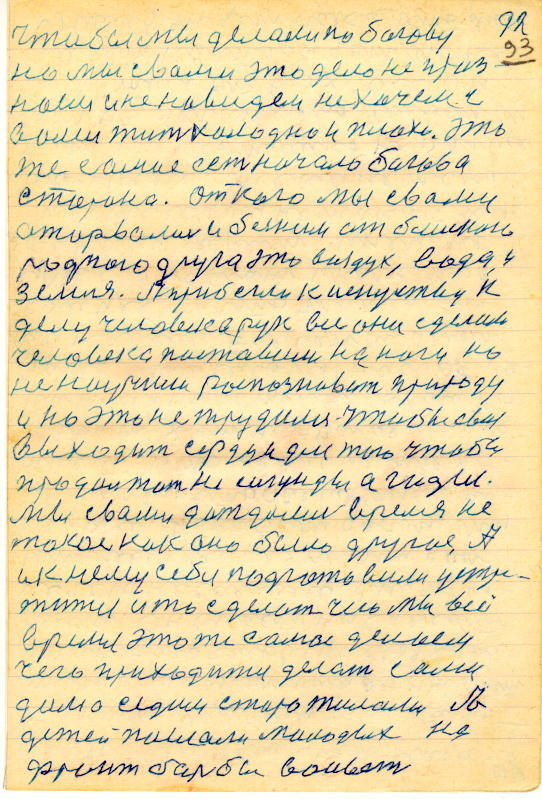 92
93
чтобы мы делали по богову
но мы свами это дело не приз-
нали и не новидем не хочем. и
вами тит холодно и плохо. это
же самое сет начало богова
сторона. от кого мы свами
оторвались и бежим от близкого
родного друга это воздух, вода, и
земля. А прибегли к искуству к
делу человека рук все они сделали
человека поставили на ноги но
не научили роспозноват природу
и но это не трудилс чтобы
выходит сердца для того чтобы
продолжат не сикунды а годы.
мы свами дождалис время не
такое как оно было другое, А
и к нему себя подготовили устре-
и то сделат что мы всё
время это же самое делаем
чего приходити делат сами
дома седим старожилами А
детей послали молодых на
фронт барбы воеват